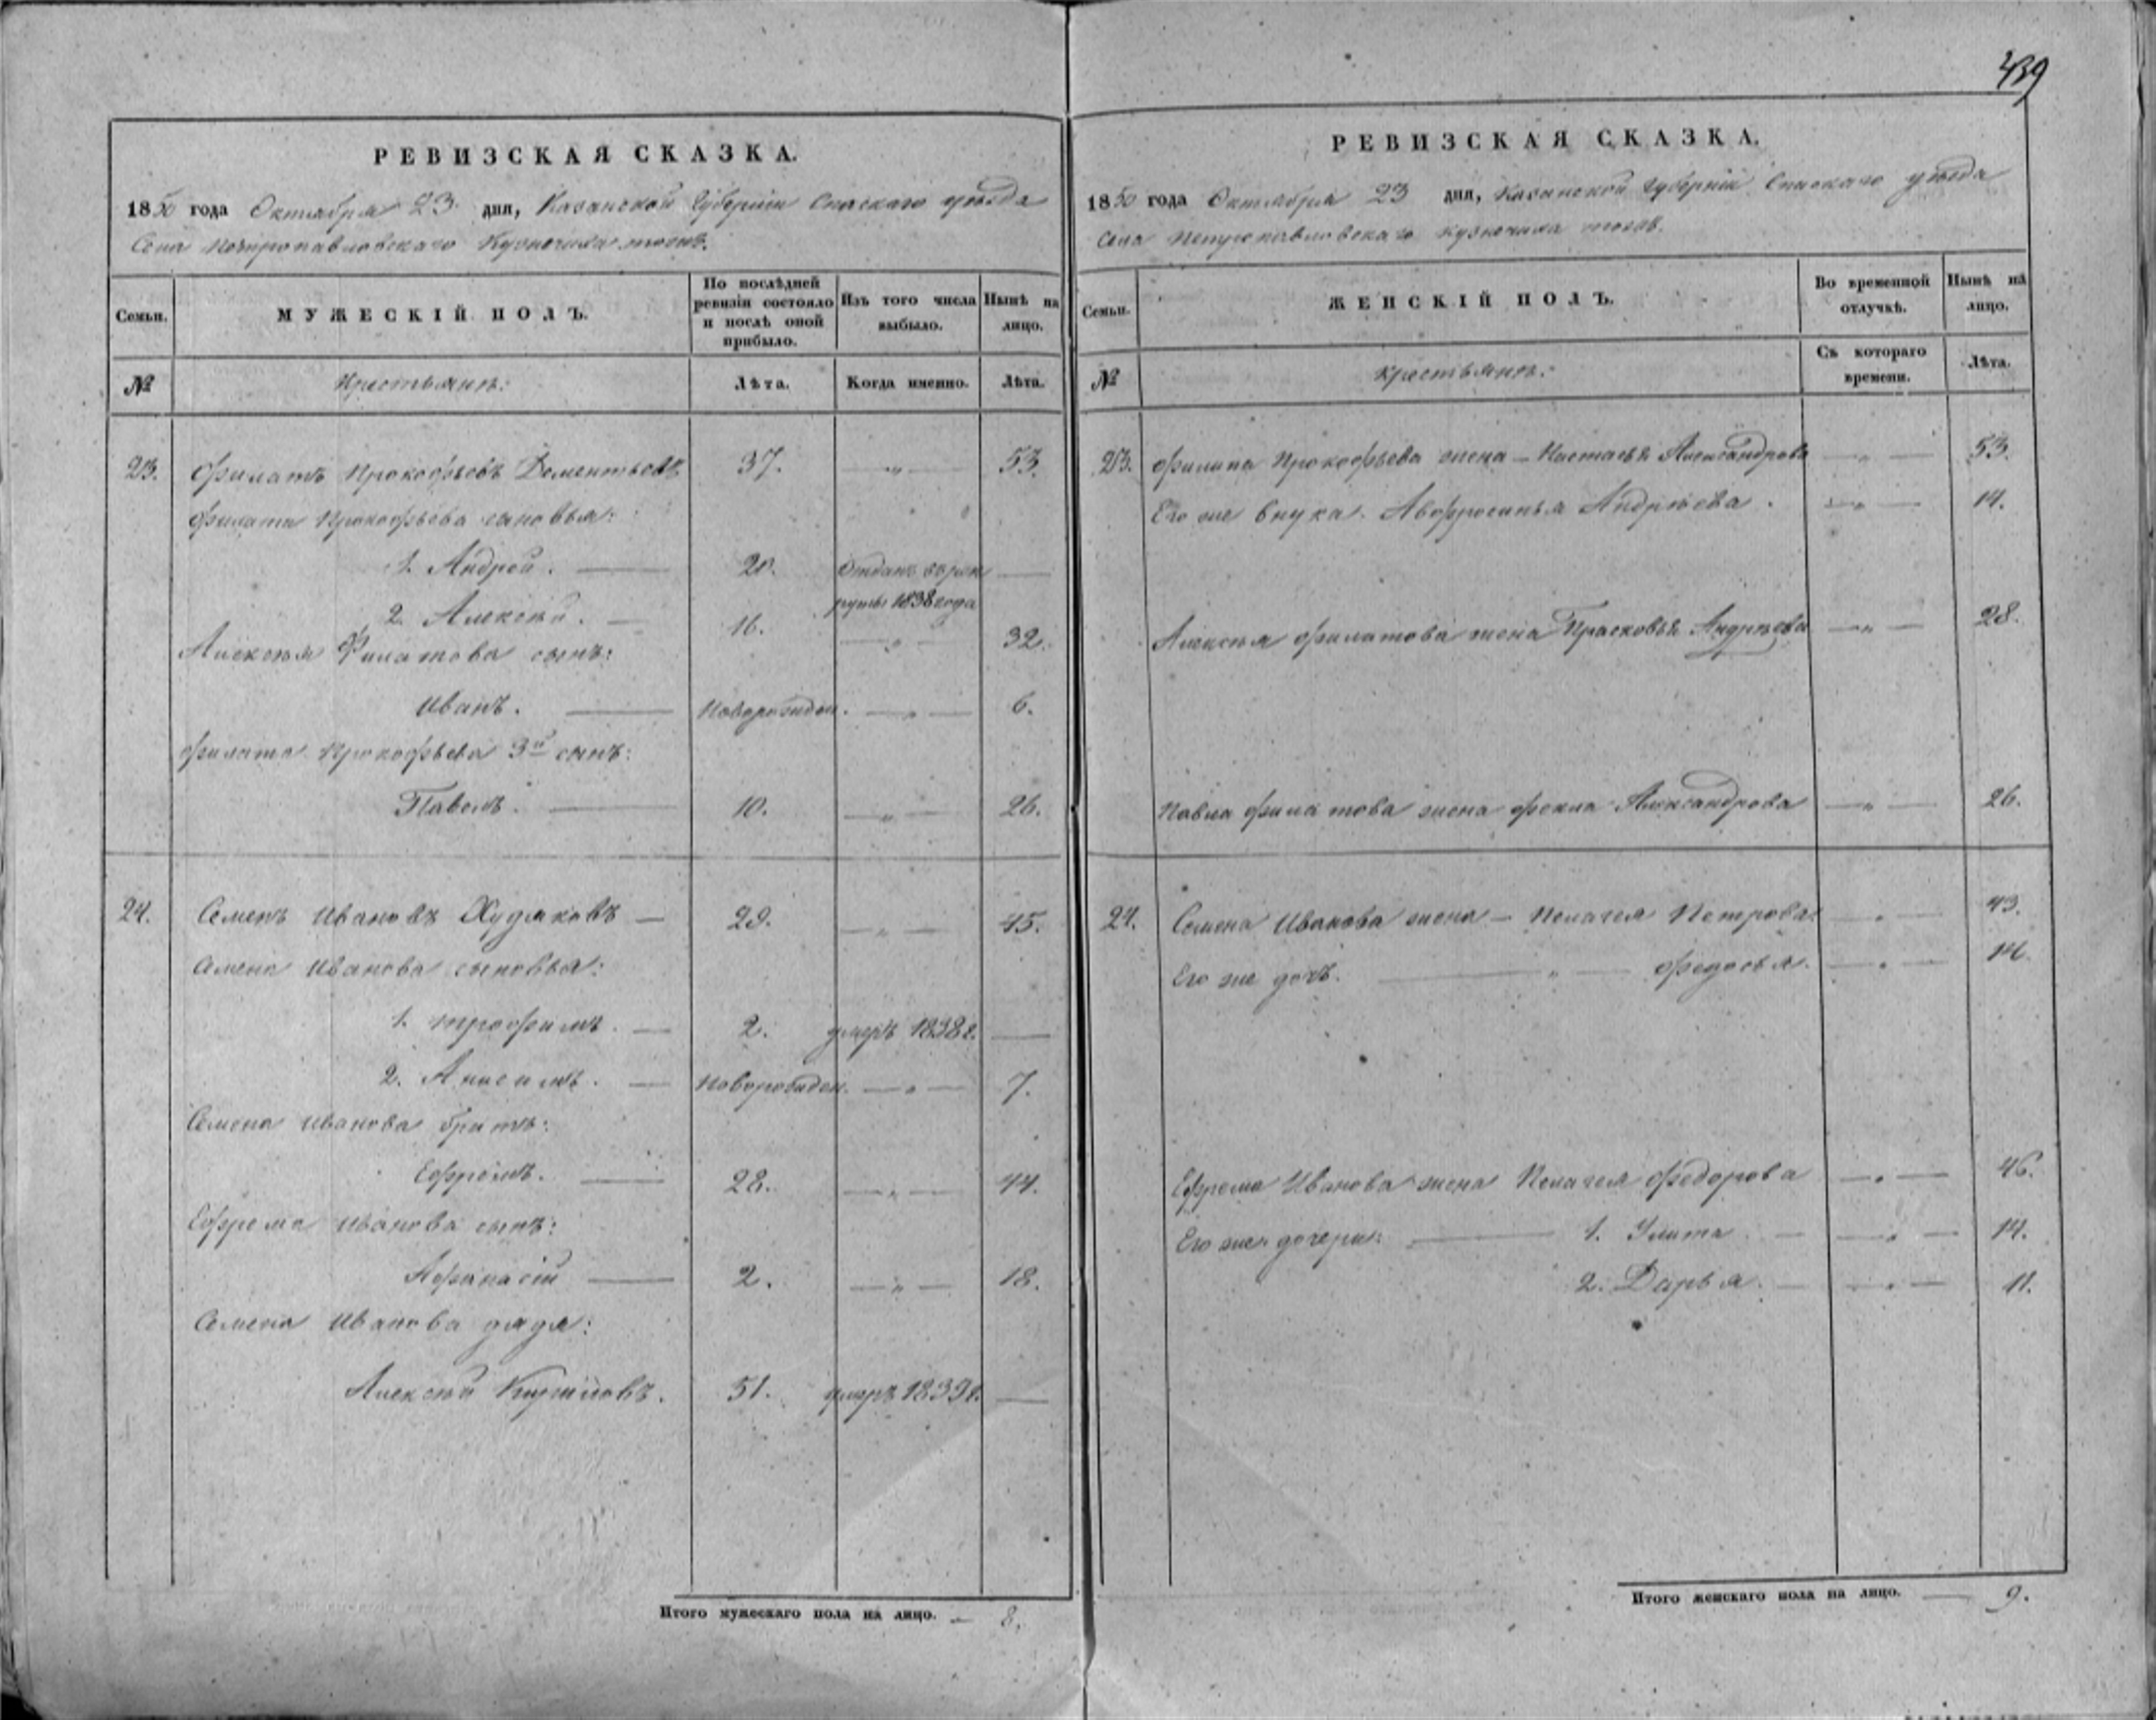 439
РЕВИЗСКАЯ СКАЗКА.
1850 года Октября 23 дня, Казанской Губернии Спаскаго уѣзда
Села Петропавловскаго Кузнечиха тожъ.
Семьи. МУЖЕСКІЙ ПОЛЪ. По послѣдней ревизіи состояло и послѣ оной прибыло. Изъ того числа выбыло. Нынѣ на лицо.
№ Крестьяне: Лѣта. Когда именно. Лѣта.
23. Филатъ Прокофьевъ Дементьевъ 37. —„— 53.
Филата Прокофьева сыновья:
1. Андрей. — 20. Отданъ въ рек
руты 1838 года —
2. Алексѣй. — 16. —„— 32.
Алексѣя Филатова сынъ:
Иванъ. — Новорожден. —„— 6.
Филата Прокофьева 3й сынъ:
Павелъ. — 10. —„— 26.
24. Семенъ Ивановъ Худяковъ — 29. —„— 45.
Семена Иванова сыновья:
1. Трофимъ. — 2. умеръ 1838 г. —
2. Анисимъ. — Новорожден. —„— 7.
Семена Иванова братъ:
Ефремъ. — 28. —„— 44.
Ефрема Иванова сынъ:
Афанасій — 2. —„— 18.
Семена Иванова дядя:
Алексѣй 51. умеръ 1839 г. —
Итого мужескаго пола на лицо. — 8.
РЕВИЗСКАЯ СКАЗКА.
1850 года Октября 23 дня, Казанской Губерніи Спаскаго уѣзда
Села Петропавловскаго Кузнечиха тожъ.
Семьи. ЖЕНСКІЙ ПОЛЪ. Во временной отлучкѣ. Нынѣ на лицо.
№ Крестьяне: Съ котораго времени. Лѣта.
23. Филата Прокофьева жена — Настасья Александрова —„— 53.
Его же внука. Авфросинья Андрѣева. —„— 14.
Алексѣя Филатова жена Прасковья Андрѣева —„— 28.
Павла Филатова жена Фекла Александрова —„— 26.
24. Семена Иванова жена — Пелагея Петрова. —„— 43.
Его же дочь. —„— Федосья. —„— 14.
Ефрема Иванова жена Пелагея Федорова —„— 46.
Его же дочери: — 1. Улита — —„— 14.
2. Дарья. — —„— 11.
Итого женскаго пола на лицо. — 9.